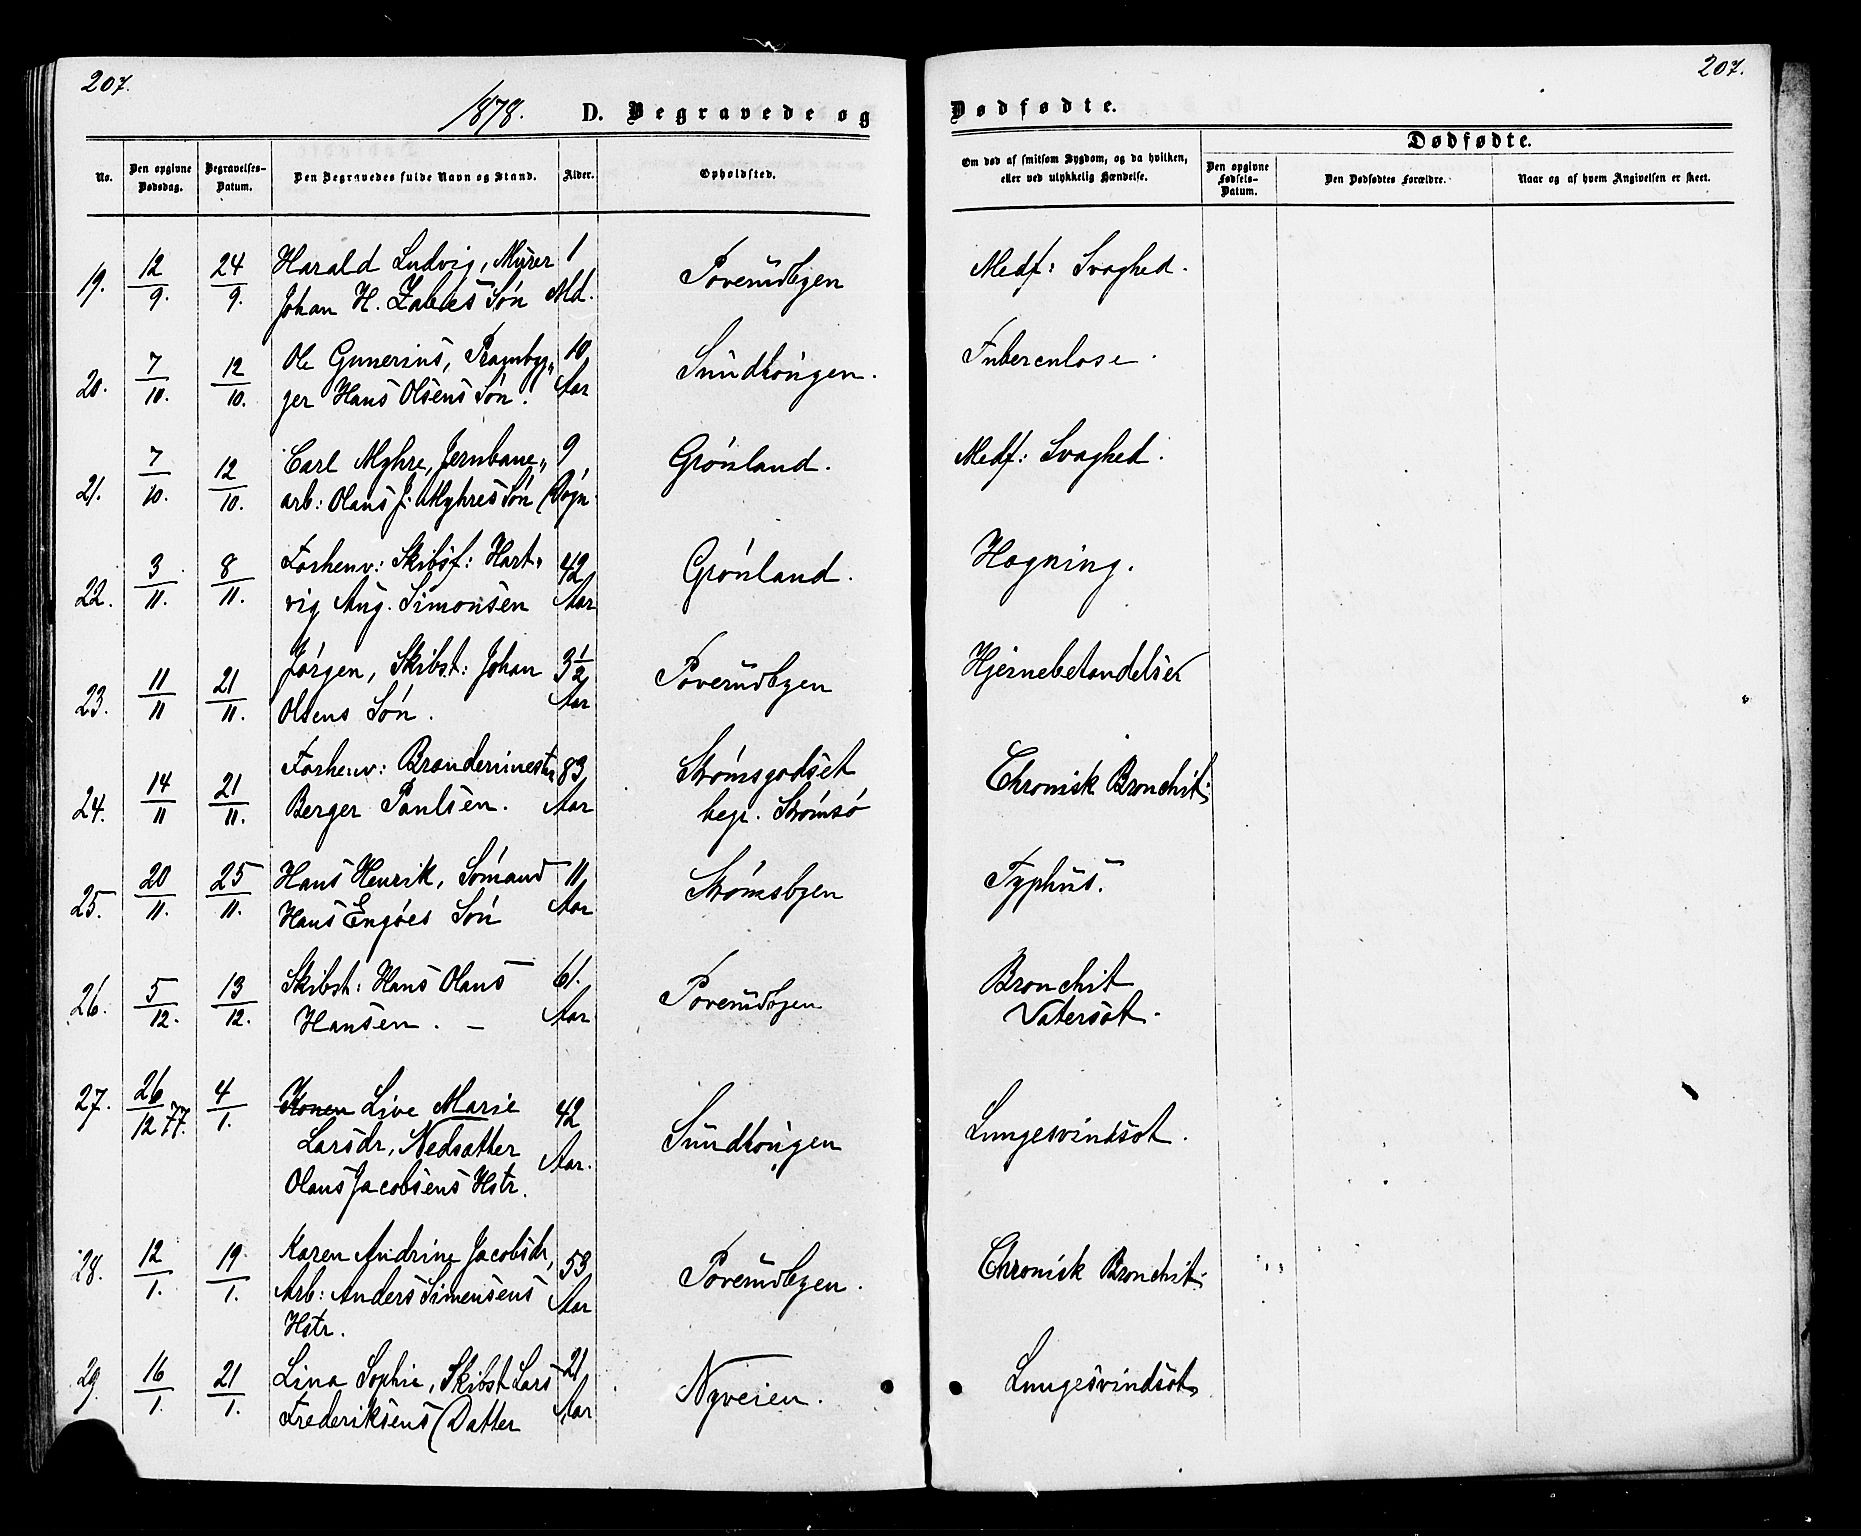 207.
207.
1878. D. Begravede og Dødfødte.
Dødfødte.
No.
Den opgivne Dødsdag.
Begravelses-Datum.
Den Begravedes fulde Navn og Stand.
Alder.
Opholdsted.
Om død af smitsom Sygdom, og da hvilken,
eller ved ulykkelig Hændelse.
Den opgivne Fødsels-Datum.
Den Dødfødtes Forældre.
Naar og af hvem Angivelsen er skeet.
19. 12/9. 24/9. Harald Ludvig, Murer 1 Poverudbyen Medf: Svaghed.
Johan H. Søn Md.
20. 7/10. 12/10. Ole Gunerius, Pramby„ 10 Sundhaugen. Tuberculose.
ger Hans Olsens Søn. Aar
21. 7/10. 12/10. Carl Myhre, Jernbane„ 9 Grønland. Medf: Svaghed.
arb: Olaus J: Myhres Søn Døgn
22. 3/11. 8/11. Forhenv: Skibsf: Hart„ 42 Grønland. Hægning.
vig Aug. Simonsen Aar
23. 11/11 21/11. Jørgen, Skibst: Johan 3½ Poverudbyen Hjernebetændelse
Olsens Søn. Aar
24. 14/11 21/11. Forhenv: Brændemester 83 Strømsgodset Chronisk Bronchit.
Berger Paulsen. Aar begr. Strømsø
25. 20/11. 25/11. Hans Henrik, Sømand 11 Strømsbyen Typhus.
Hans Engøes Søn Aar
26. 5/12. 13/12. Skibst: Hans Olaus 61. Poverudbyen Bronchit
Hansen. – Aar Vatersot.
27. 26/12 77. 4/1. Konen Live Marie 42 Sundhaugen Lungesvindsot.
Larsdr, Nedsatter Aar.
Olaus Jacobsens Hstr.
28. 12/1. 19/1. Karen Andrine Jacobsdr, 53 Poverudbyen. Chronisk Bronchit.
Arb: Anders Simensens Aar
Hstr.
29. 16/1. 21/1. Lina Sophie, Skibst Lars 21 Nyveien. Lungesvindsot
Frederiksens Datter Aar